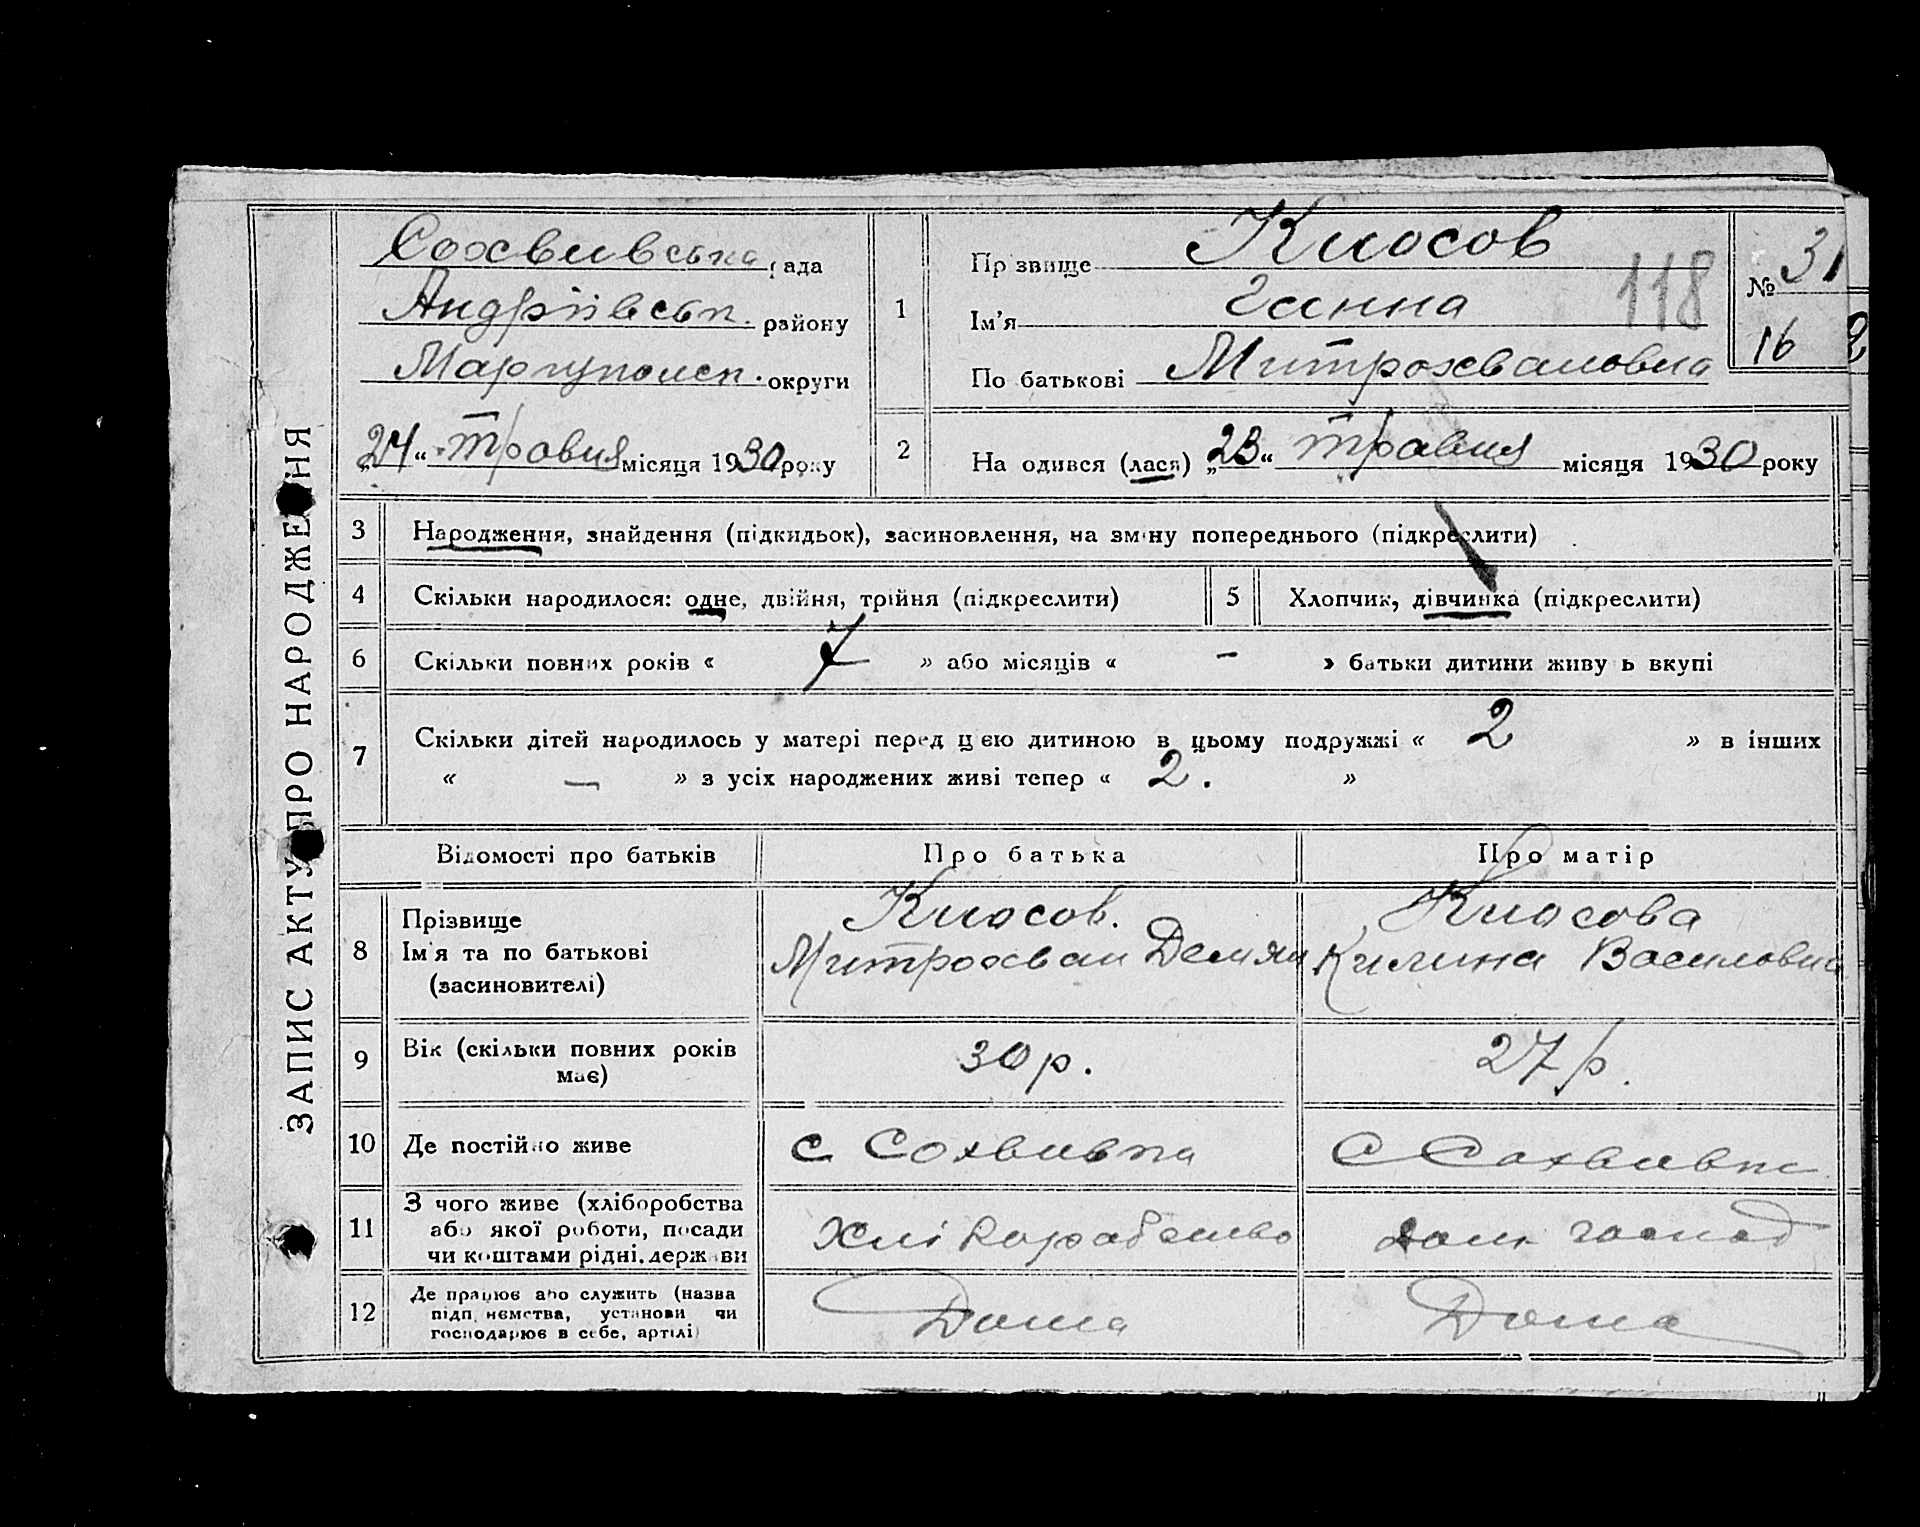 ЗАПИС АКТУ ПРО НАРОДЖЕННЯ
Сохвивська рада
Андріївськ. району
Маріупольск. округи
„24“ травня місяця 1930 року
1
Прізвище Клюсов
Ім'я Ганна
По батькові Митрохвановна
118
№ 31
16
2
На одився (лася) „23“ травня місяця 1930 року
3 Народження, знайдення (підкидьок), засиновлення, на зміну попереднього (підкреслити)
4 Скільки народилося: одне, двійня, трійня (підкреслити)
5 Хлопчик, дівчинка (підкреслити)
6 Скільки повних років « 7 » або місяців « – » батьки дитини живуть вкупі
7 Скільки дітей народилось у матері перед цією дитиною в цьому подружжі « 2 » в інших
« — » з усіх народжених живі тепер « 2. »
Відомості про батьків Про батька Про матір
8 Прізвище Клюсов. Клюсова
Ім'я та по батькові Митрохван Демян Килина Василовна
(засиновителі)
9 Вік (скільки повних років 30 р. 27 р.
має)
10 Де постійно живе с Сохвивка с Сохвивка
11 З чого живе (хліборобства
або якої роботи, посади Хліборобство дом. господ
чи коштами рідні, держави
12 Де працює або служить (назва
підприємства, установи чи Дома Дома
господарює в себе, артілі)